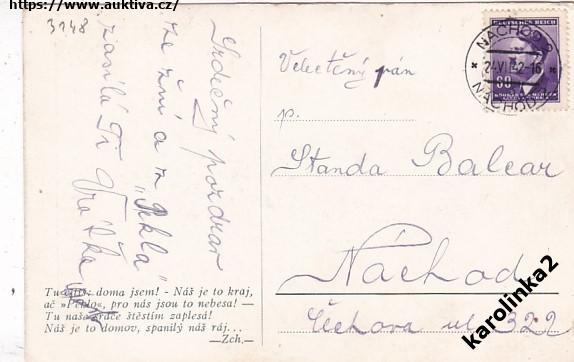 https://www.auktiva.cz/
3148
Srdečný pozdrav
ze žní a z
„Pekla“
zasílá Ti
Velectěný pán
p.
Standa Balcar
Náchod
Čechova ul 322
DEUTSCHES REICH
80
NÁCHOD 2
24 VI 42-16
NACHOD
Tu doma jsem! - Náš je to kraj,
ač »Peklo«, pro nás jsou to nebesa! —
Tu naše srdce štěstím zaplesá!
Náš je to domov, spanilý náš ráj...
—Zch.—
karolinka2